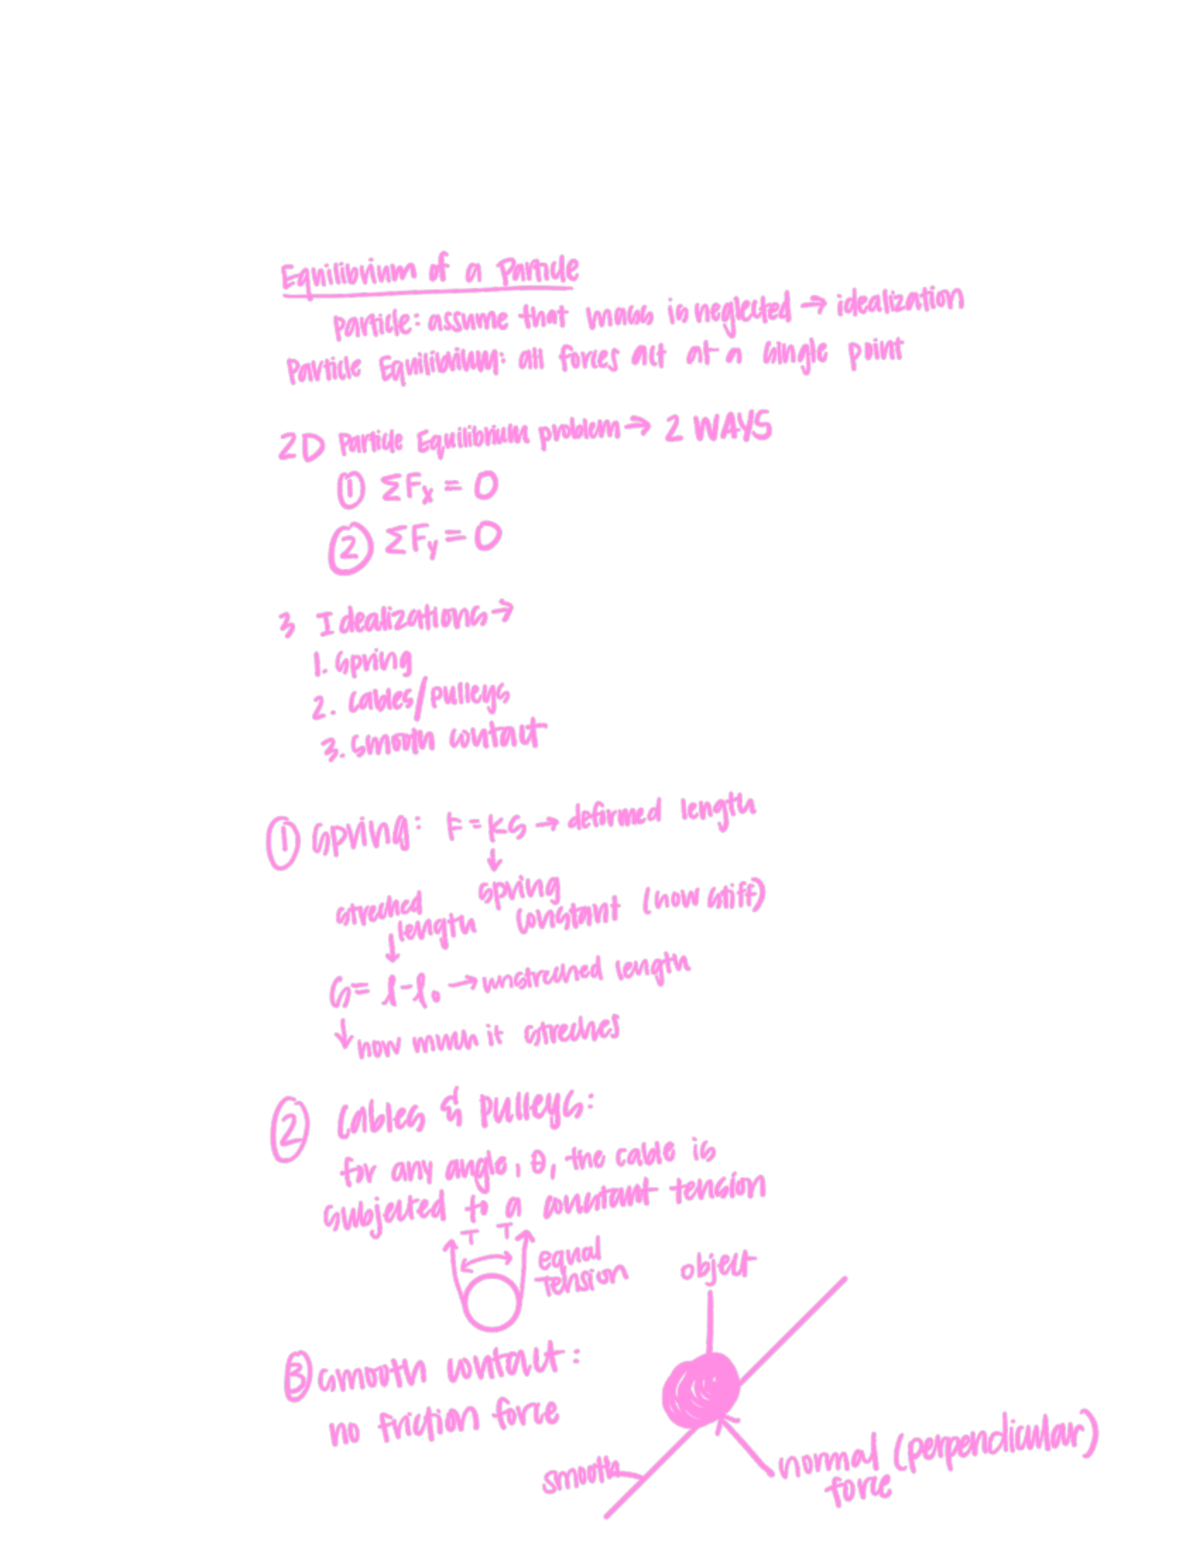 Equilibrium of a Particle
particle: assume that mass is neglected → idealization
Particle Equilibrium: all forces act at a single point
2D Particle Equilibrium problem → 2 WAYS
① ΣFx = 0
② ΣFy = 0
3 Idealizations →
1. spring
2. cables/pulleys
3. smooth contact
① spring: F = ks → deformed length
↓
spring
constant (how stiff)
streched
length
↓
s = l - l₀ → unstreched length
↓ how much it streches
② cables & pulleys:
for any angle, θ, the cable is
subjected to a constant tension
T T
equal
tension
③ smooth contact:
no friction force
object
smooth
normal (perpendicular)
force